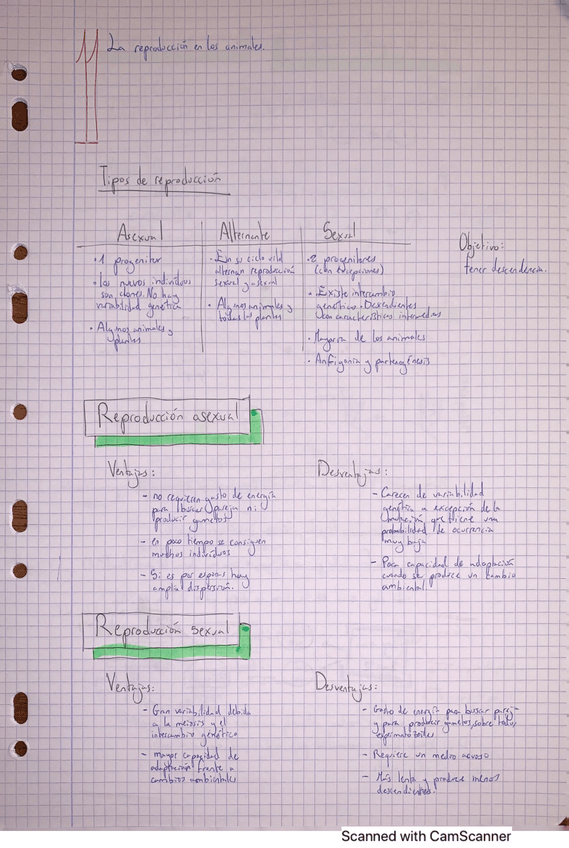 11 La reproducción en los animales.
Tipos de reproducción
Asexual
· 1 progenitor
· Los nuevos individuos
son clones. No hay
variabilidad genética
· Algunos animales y
plantas
Alternante
· En su ciclo vital
alternan reproducción
sexual y asexual
· Algunos animales y
todas las plantas
Sexual
· 2 progenitores
(con excepciones)
· Existe intercambio
genético. Descendientes
con características intermedias
· Mayoría de los animales
· Anfigonia y partenogénesis
Objetivo:
tener descendencia.
Reproducción asexual
Ventajas:
- no requieren gasto de energía
para buscar pareja ni
producir gametos
- en poco tiempo se consiguen
muchos individuos
- Si es por esporas hay
amplia dispersión.
Desventajas:
- Carecen de variabilidad
genética a excepción de la
mutación que tiene una
probabilidad de ocurrencia
muy baja
- Poca capacidad de adaptación
cuando se produce un cambio
ambiental.
Reproducción sexual
Ventajas:
- Gran variabilidad debida
a la meiosis y el
intercambio genético
- mayor capacidad de
adaptación frente a
cambios ambientales
Desventajas:
- Gasto de energía para buscar pareja
y para producir gametos, sobre todo,
espermatozoides.
- Requiere un medio acuoso
- Más lenta y produce menos
descendientes.
Scanned with CamScanner